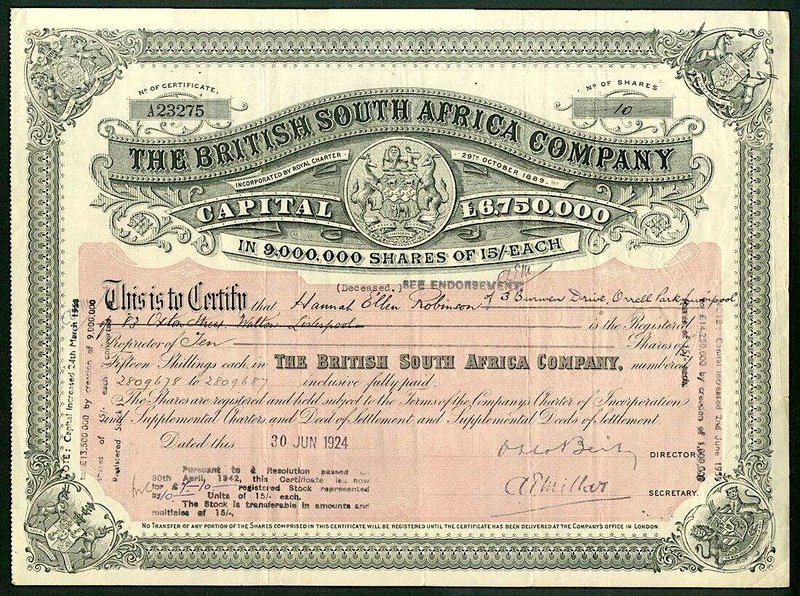 No OF CERTIFICATE.
A23275
No OF SHARES
10
THE BRITISH SOUTH AFRICA COMPANY
INCORPORATED BY ROYAL CHARTER
29TH OCTOBER 1889.
CAPITAL £6,750,000
IN 9,000,000 SHARES OF 15/-EACH
(Deceased.) SEE ENDORSEMENT
This is to Certify that Hannah Ellen Robinson of 3 Burwen Drive, Orrell Park, Liverpool
of 83 Oxton Street Walton Liverpool is the Registered
Proprietor of Ten Shares of
Fifteen Shillings each, in THE BRITISH SOUTH AFRICA COMPANY, numbered
2809678 to 2809687 inclusive fully paid.
The Shares are registered and held subject to the Terms of the Company's Charter of Incorporation
and Supplemental Charters and Deed of Settlement and Supplemental Deeds of Settlement.
Dated this 30 JUN 1924
Otto Beit DIRECTOR
A P Millar SECRETARY.
Pursuant to a Resolution passed on
30th April, 1942, this Certificate is now
for £7-10 registered Stock represented
by 10 Units of 15/- each.
The Stock is transferable in amounts and
multiples of 15/-.
NO TRANSFER OF ANY PORTION OF THE SHARES COMPRISED IN THIS CERTIFICATE WILL BE REGISTERED UNTIL THE CERTIFICATE HAS BEEN DELIVERED AT THE COMPANY'S OFFICE IN LONDON.
NOTE: Capital increased 24th March 1950
to £13,500,000 by creation of 9,000,000
shares of 15/- each converted
Registered Stock
NOTE: Capital increased 2nd June 1955
to £14,250,000 by creation of 1,000,000